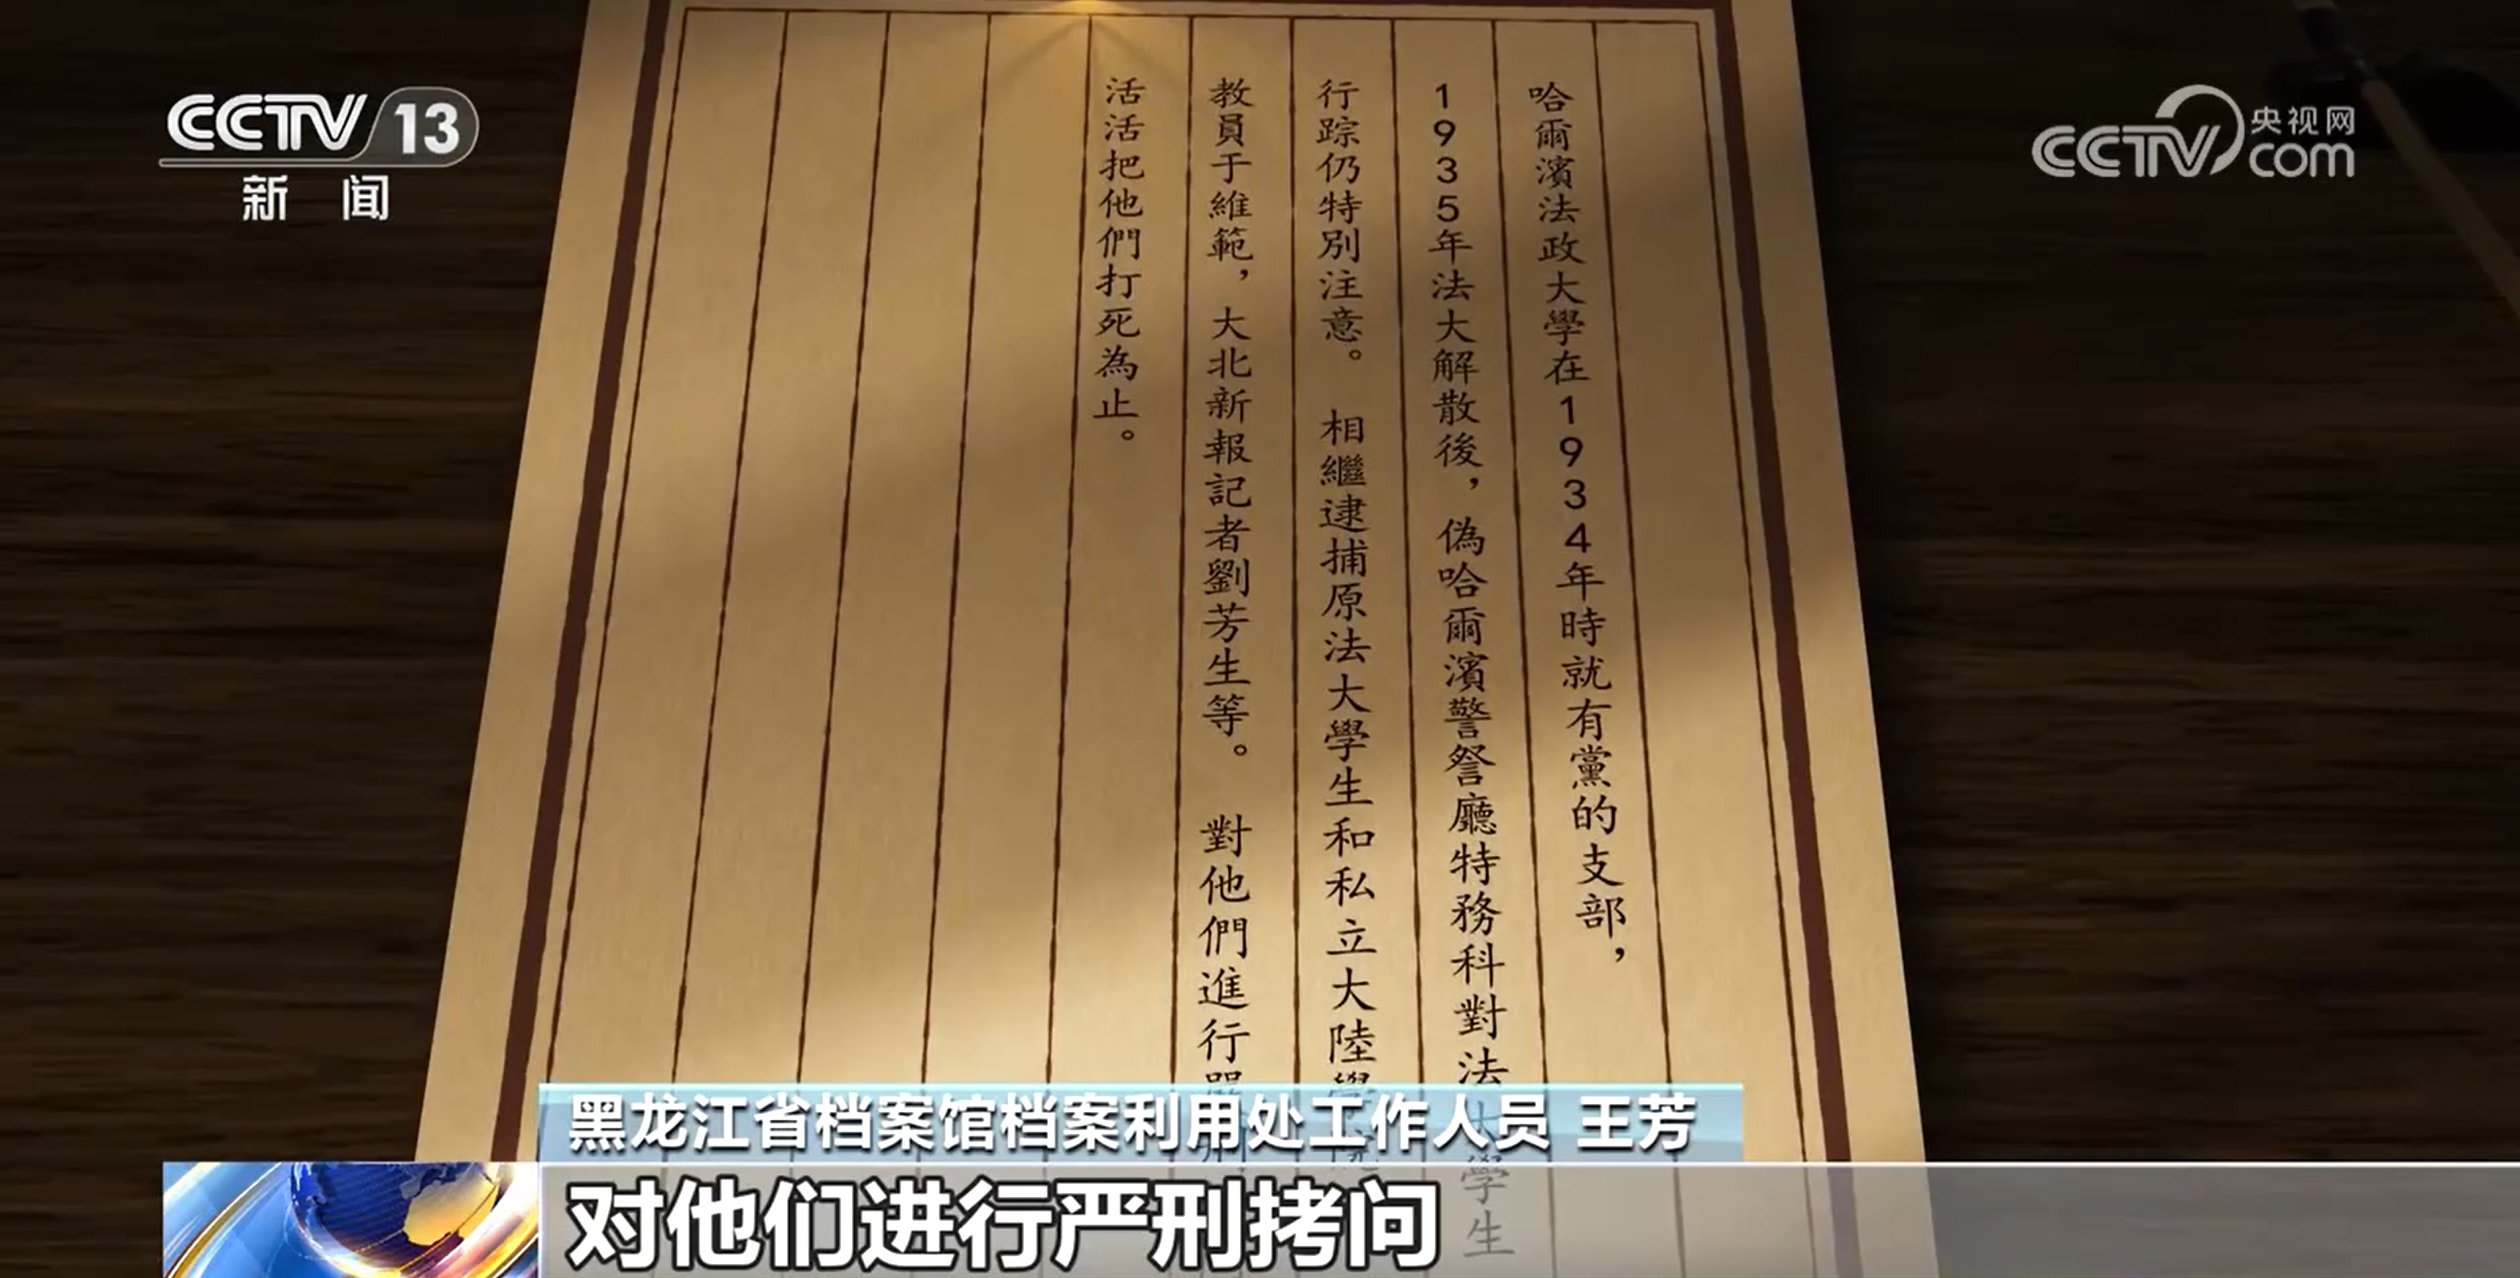 CCTV 13
新闻
央视网
CCTV com
哈爾濱法政大學在1934年時就有黨的支部，
1935年法大解散後，偽哈爾濱警詧廳特務科對法大學生
行踪仍特別注意。 相繼逮捕原法大學生和私立大陸學院
教員于維範，大北新報記者劉芳生等。 對他們進行嚴刑
活活把他們打死為止。
黑龙江省档案馆档案利用处工作人员 王芳
对他们进行严刑拷问